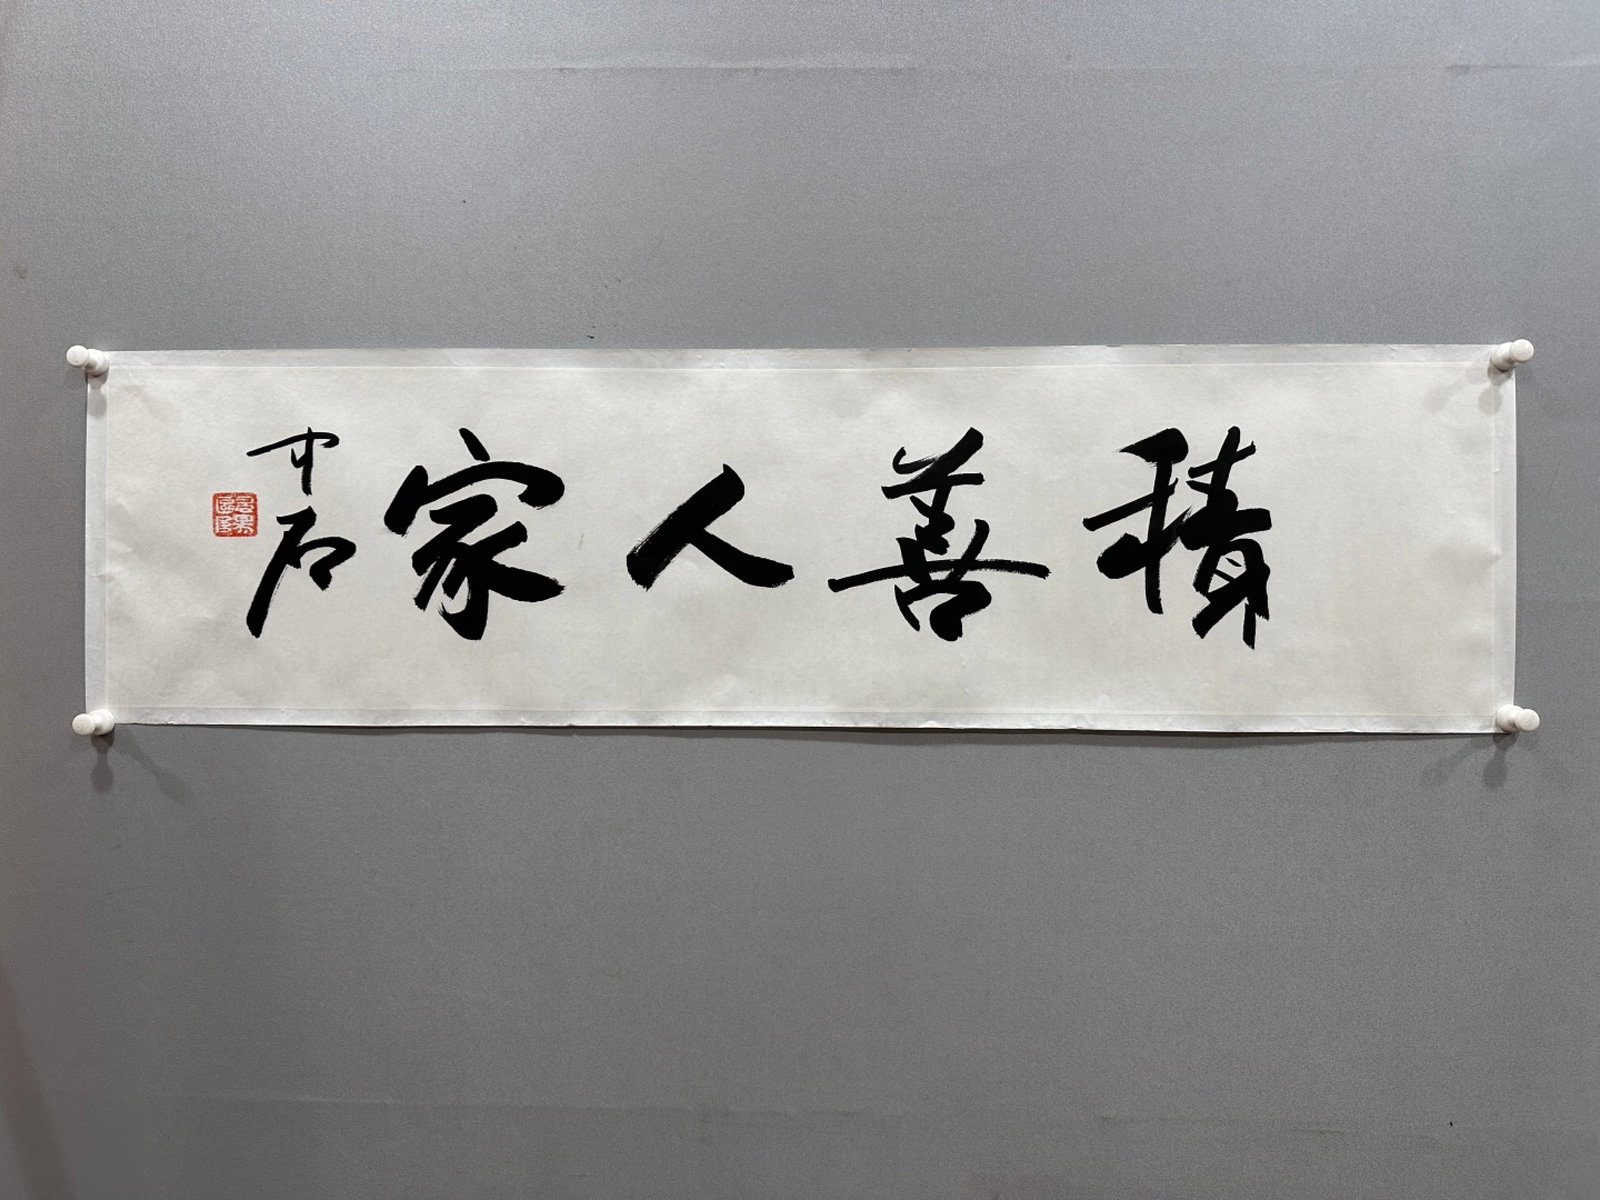 積善人家
中石